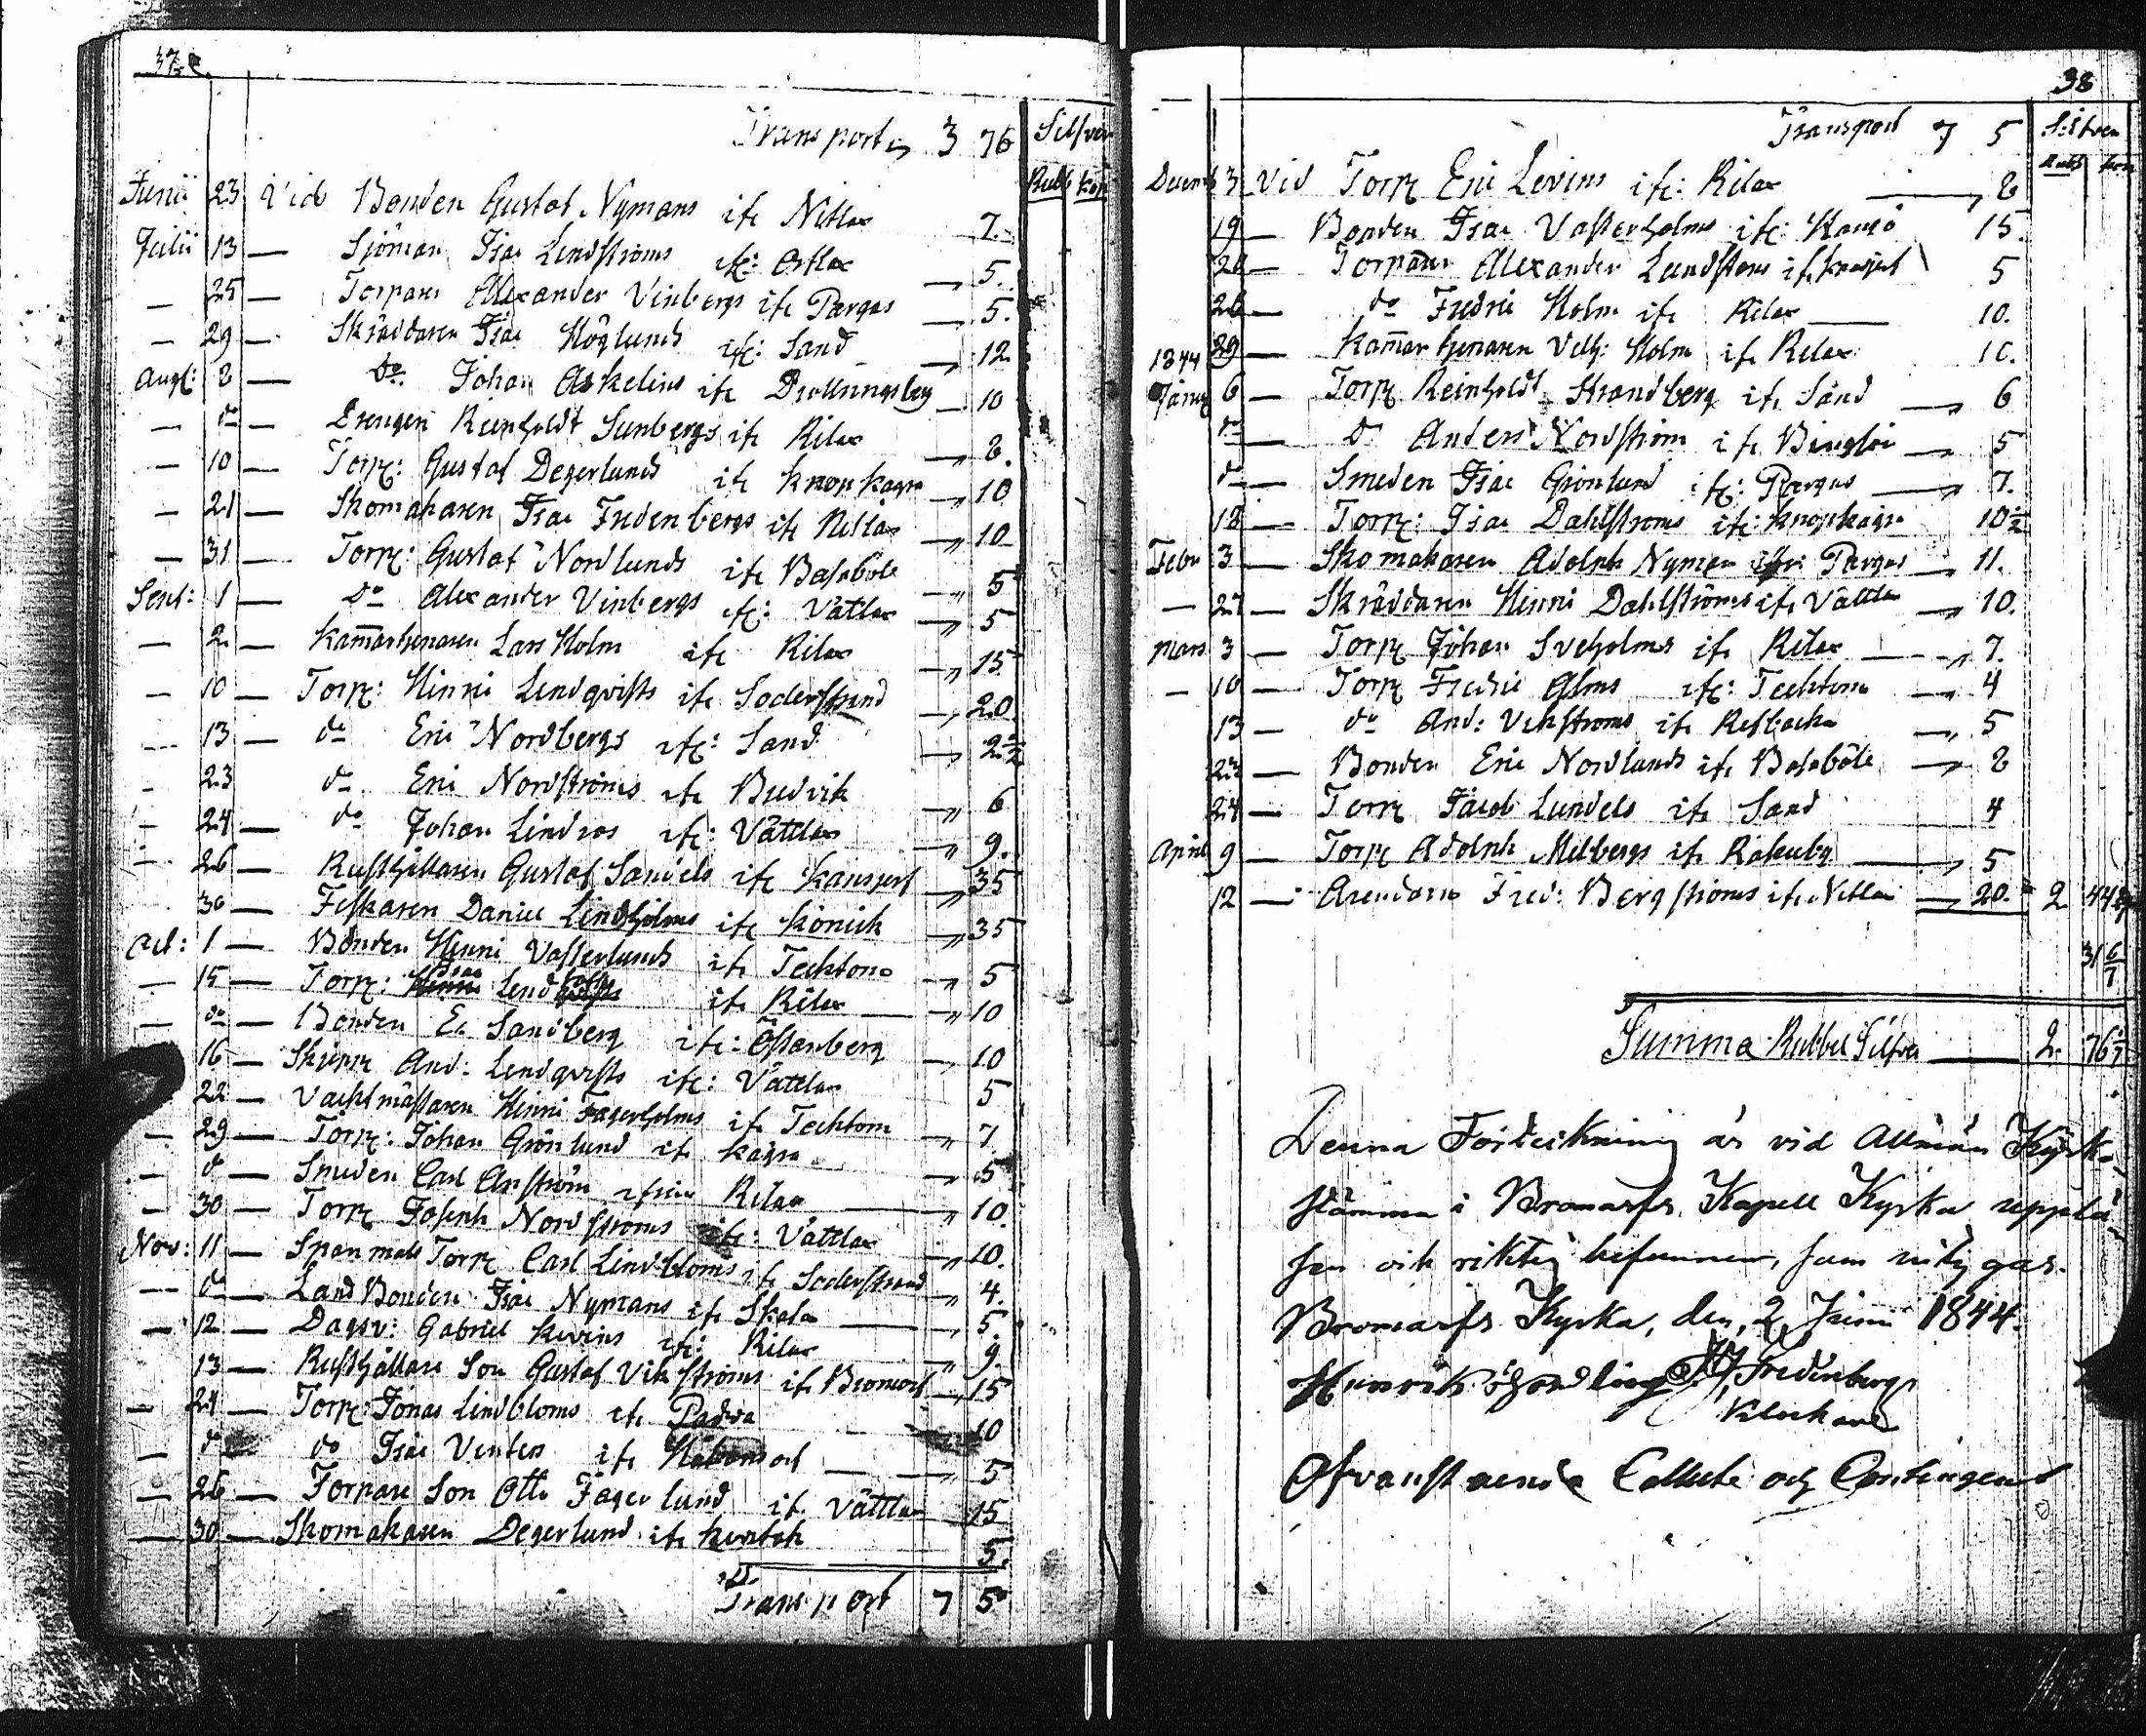 37
Transport 3 76 Silfver
Rubb kop
Junii 23 Vid Bonden Gustaf Nymans ifr Nitlax 7.
Julii 13 — Sjöman Isac Lindströms ifr: Östlax 5.
— 25 — Torpare Alexander Vinbergs ifr Pargas 5.
— 29 — Skräddaren Isac Höglunds ifr: Sand 12
Aug: 8 — do Johan Askelins ifr 10
— do — Drengen Reinholdt Sunbergs ifr Rilax 8.
— 10 — Torp: Gustaf Degerlunds ifr Knopkägra 10
— 21 — Skomakaren Isac Fredenbergs ifr Nitlax 10
— 31 — Torp: Gustaf Nordlunds ifr Bassböle 5
Sept: 1 — do Alexander Vinbergs ifr: Vättlax 5
— 2 — Kammartjenaren Lars Holm ifr Rilax 15
— 10 — Torp: Hinric Lindqvists ifr Söderstrand 20
— 13 — do Eric Nordbergs ifr: Sand 2½
— 23 do Eric Nordströms ifr Bredvik 6
— 24 — do Johan Lindros ifr: Vättlax 9.
— 26 — Rusthållaren Gustaf Sandels ifr Kansjerf 35
30 — Fiskaren Daniel Lindholms ifr Könick 35
Oct: 1 — Bonden Hinric Vasterlunds ifr Tecktom 5
— 15 — Torp: Isac Lindholms ifr Rilax 10
— do — Bonden E. Sandberg ifr: Östanberg 10
16 — Skepp And: Lindqvists ifr: Vättlax 5
22 — Vachtmästaren Hinric Fagerholms ifr Tecktom 7
— 29 — Torp: Johan Grönlund ifr Kägra 5
— do — Smeden Carl Anström ifrån Rilax 10.
— 30 — Torp Joseph Nordströms ifr: Vättlax 10.
Nov: 11 — Spanmåls Torp Carl Lindbloms ifr Söderstrand 4.
— do — Land Bonden Isac Nymans ifr Skala 5
— 12 — Dagsv: Gabriel Kevins ifr: Rilax 9.
13 — Rusthållare Son Gustaf Vikströms ifr Bromarf 15
— 24 — Torp: Jonas Lindbloms ifr Padva 10
— do do Isac Vinters ifr 5
— 26 — Torpare Son Otto Fagerlund ifr Vättlax 15
— 30 — Skomakaren Degerlund ifr 5.
Transport 7 5
38
Transport 7 5 Silfver
Rubb kop
Decemb 3 Vid Torp Eric Levins ifr: Rilax 8
19 — Bonden Isac Vasterholms ifr: Hansö 15.
26 — Torparen Alexander Lundströms ifr Kansjerf 5
26 — do Fredric Holm ifr Rilax 10.
1844 29 — Kammartjenaren Vilh: Holm ifr Rilax 10.
Januar 6 — Torp Reinholdt Strandberg ifr Sand 6
do — do Anders Nordström ifr 5
do — Smeden Isac Grönlund ifr: Pargas 7.
18 — Torp: Isac Dahlströms ifr: Knopkägra 10½
Febr 3 — Skomakaren Adolph Nyman ifr: Pargas 11.
— 27 — Skräddaren Hinric Dahlströms ifr Vättlax 10.
Mars 3 — Torp Johan Sveholms ifr Rilax 7.
— 10 — Torp Fredric Alms ifr: Tecktom 4
13 — do And: Vikströms ifr Refbacka 5
23 — Bonden Eric Nordlunds ifr Bassböle 8
24 — Torp Jacob Lundels ifr Sand 4
April 9 — Torp Adolph Milbergs ifr Rakuby 5
12 — Arendators Fred: Bergströms ifr Nitlax 20. 2 44
31 6/7
Summa Rubbel Silfver 2 76
Denna Förteckning är vid Allmän Kyrko-
stämma i Bromarfs Kapell Kyrka upplä-
sen och riktig befunnen, som intygas.
Bromarfs Kyrka, den 2 Junii 1844.
Henrik Fredenberg
Klockare
Ofvanstående Collecte och Contingent